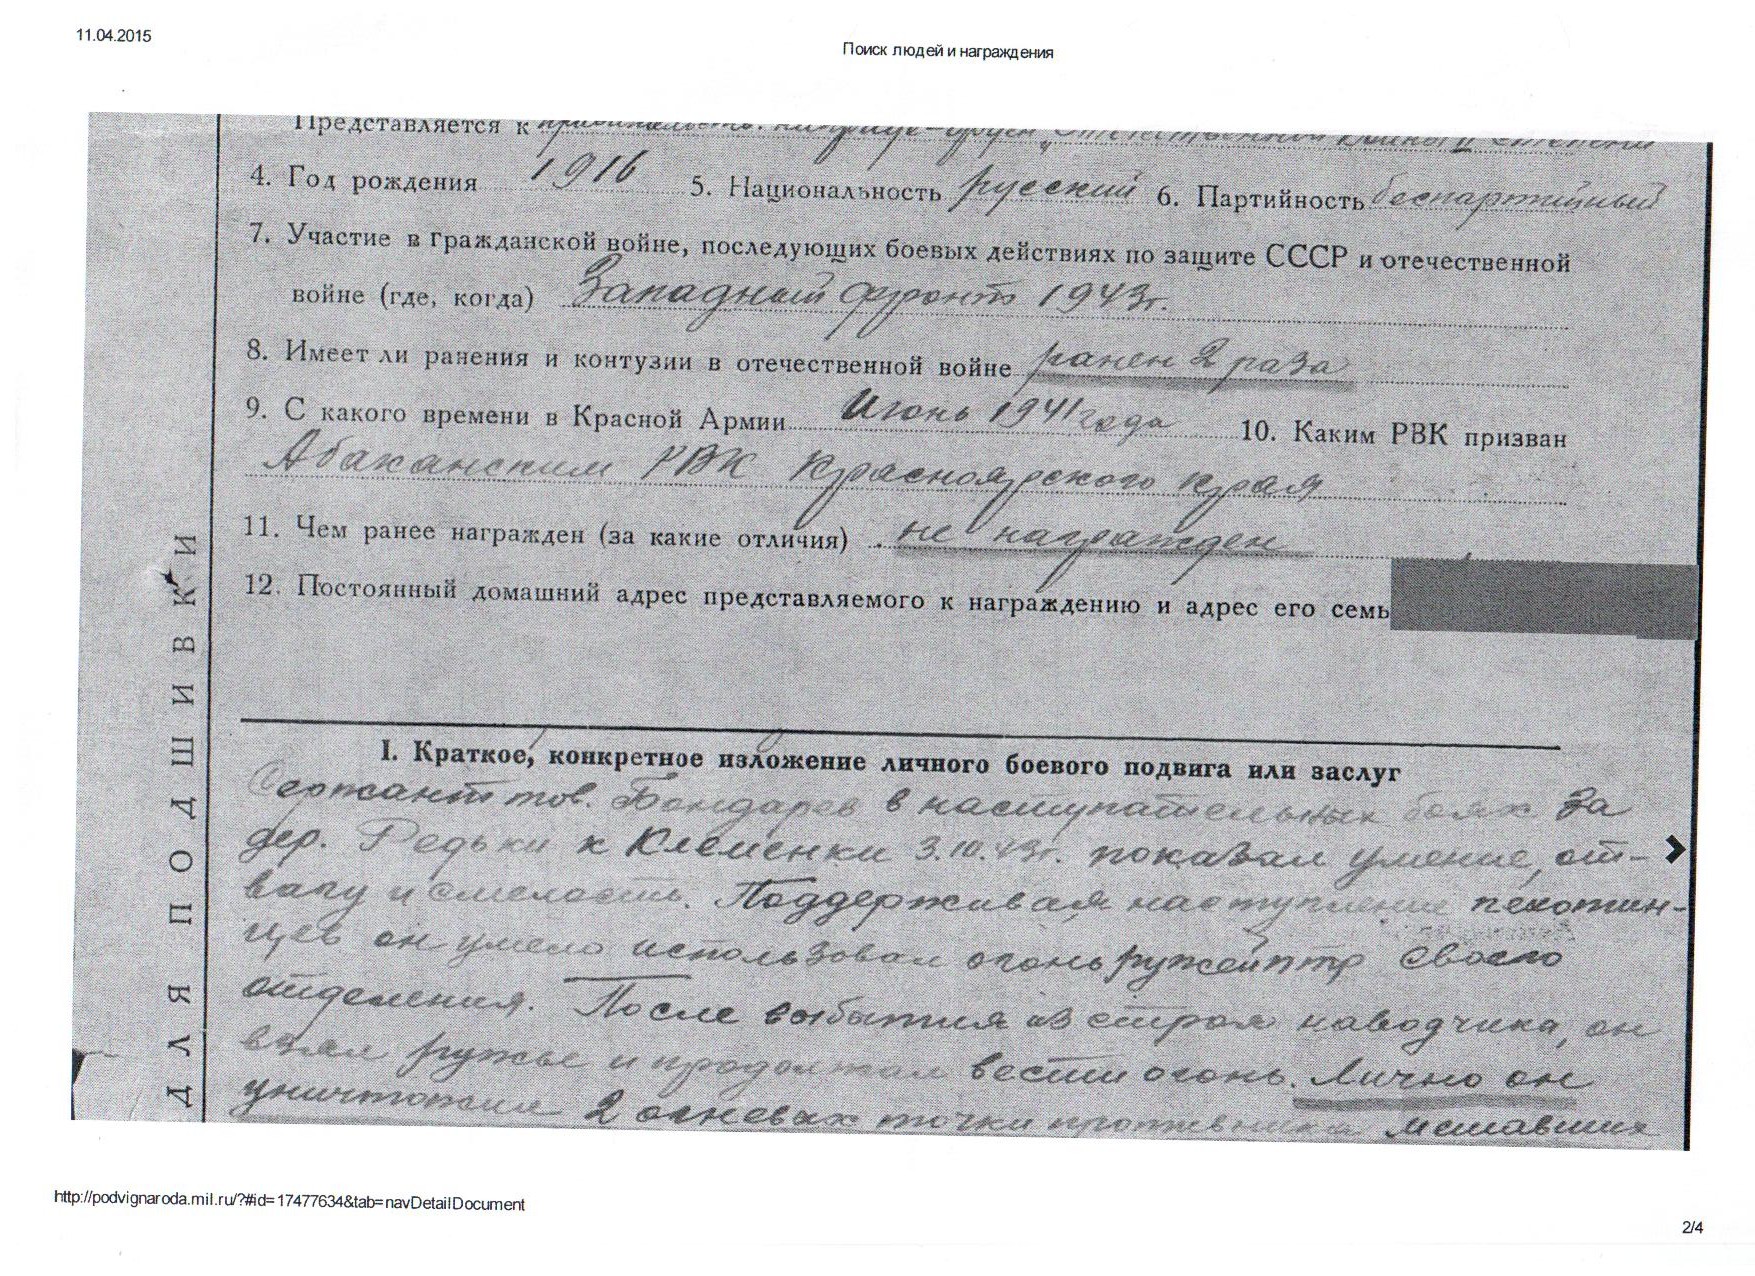 11.04.2015
Поиск людей и награждения
Представляется к правительств. награде - орден „Отечественной войны II степени
4. Год рождения 1916 5. Национальность русский 6. Партийность беспартийный
7. Участие в гражданской войне, последующих боевых действиях по защите СССР и отечественной
войне (где, когда) Западный фронт 1943г.
8. Имеет ли ранения и контузии в отечественной войне ранен 2 раза
9. С какого времени в Красной Армии Июнь 1941 года 10. Каким РВК призван
Абаканским РВК Красноярского края
11. Чем ранее награжден (за какие отличия) не награжден
12. Постоянный домашний адрес представляемого к награждению и адрес его семь
I. Краткое, конкретное изложение личного боевого подвига или заслуг
Сержант тов. Бондарев в наступательных боях за
дер. Редьки и Клеменки 3.10.43г. показал умение, от-
вагу и смелость. Поддерживая наступление пехотин-
цев он умело использовал огонь ружей птр своего
отделения. После выбытия из строя наводчика, он
взял ружье и продолжал вести огонь. Лично он
уничтожил 2 огневых точки противника мешавших
ДЛЯ ПОДШИВКИ
http://podvignaroda.mil.ru/?#id=17477634&tab=navDetailDocument
2/4